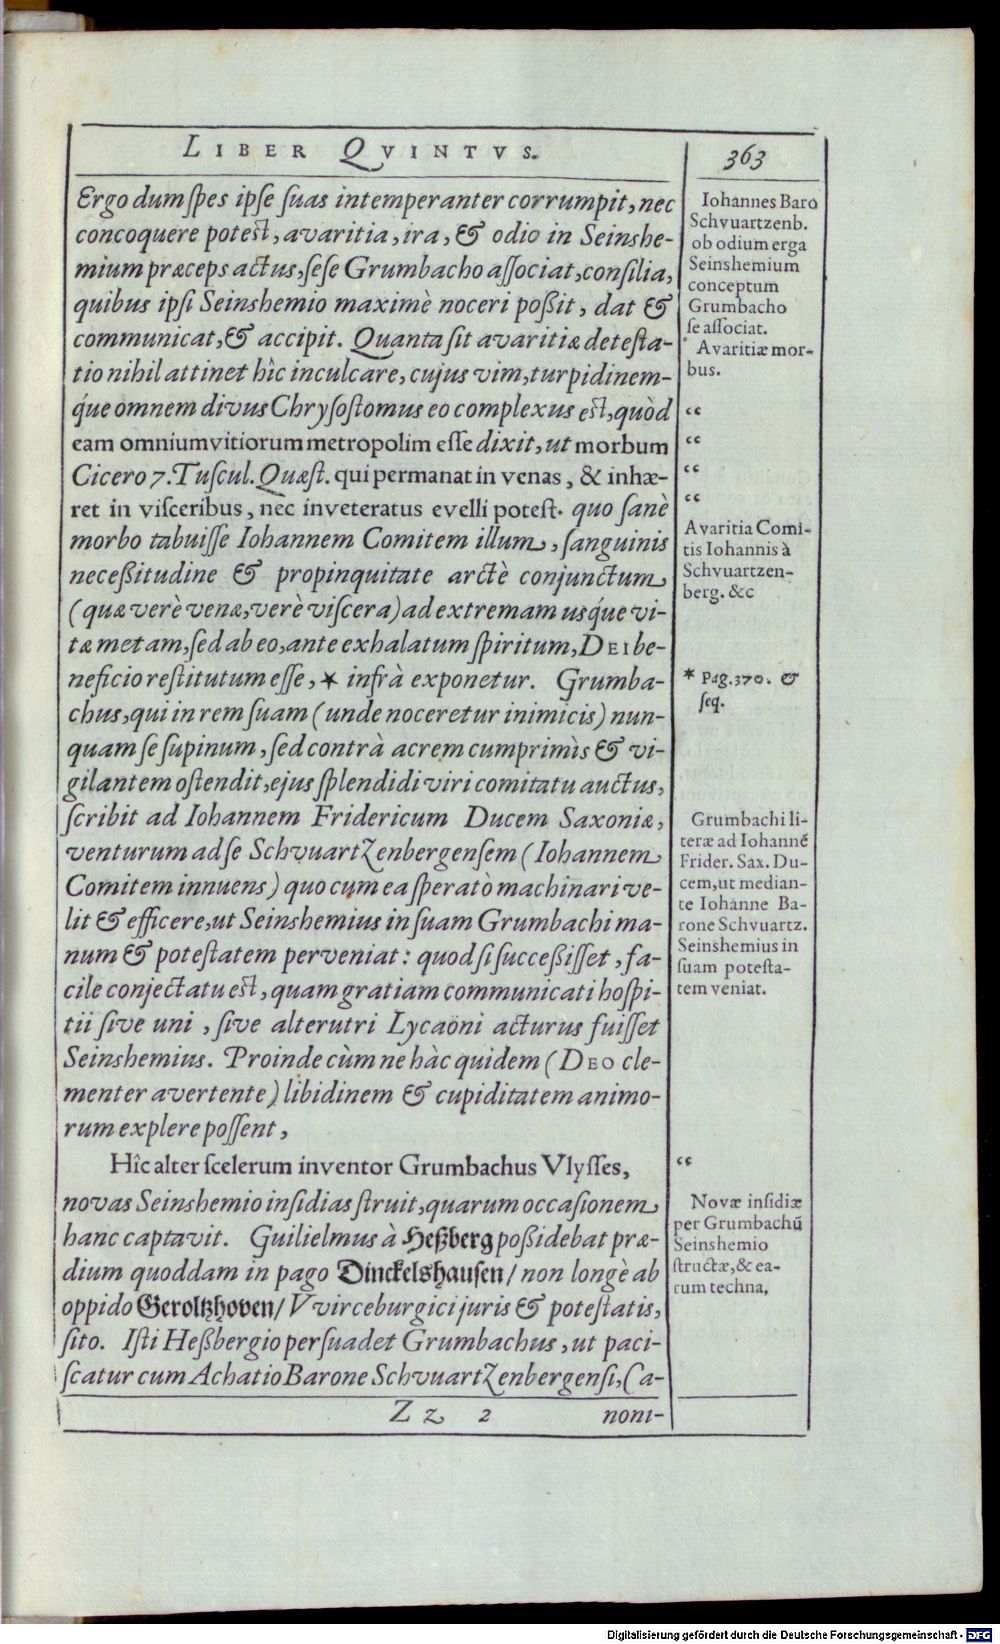 LIBER QVINTVS.
363
Ergo dum ſpes ipſe ſuas intemperanter corrumpit, nec
concoquere poteſt, avaritia, ira, & odio in Seinshe-
mium præceps actus, ſeſe Grumbacho aſſociat, conſilia,
quibus ipſi Seinshemio maximè noceri poßit, dat &
communicat, & accipit. Quanta ſit avaritiæ deteſta-
tio nihil attinet hîc inculcare, cujus vim, turpidinem-
q́ue omnem divus Chryſoſtomus eo complexus eſt, quòd
eam omnium vitiorum metropolim eſſe dixit, ut morbum
Cicero 7. Tuſcul. Quæſt. qui permanat in venas, & inhæ-
ret in viſceribus, nec inveteratus evelli poteſt. quo ſanè
morbo tabuiſſe Iohannem Comitem illum, ſanguinis
neceßitudine & propinquitate arctè conjunctum
(quæ verè venæ, verè viſcera) ad extremam usq́ue vi-
tæ metam, ſed ab eo, ante exhalatum ſpiritum, DEI be-
neficio reſtitutum eſſe, * infrà exponetur. Grumba-
chus, qui in rem ſuam (unde noceretur inimicis) nun-
quam ſe ſupinum, ſed contrà acrem cumprimìs & vi-
gilantem oſtendit, ejus ſplendidi viri comitatu auctus,
ſcribit ad Iohannem Fridericum Ducem Saxoniæ,
venturum ad ſe Schvuartzenbergenſem (Iohannem
Comitem innuens) quo cum ea ſperatò machinari ve-
lit & efficere, ut Seinshemius in ſuam Grumbachi ma-
num & poteſtatem perveniat: quod ſi succeßiſſet, fa-
cile conjectatu eſt, quam gratiam communicati hoſpi-
tii ſive uni, ſive alterutri Lycaöni acturus fuiſſet
Seinshemius. Proinde cùm ne hàc quidem (DEO cle-
menter avertente) libidinem & cupiditatem animo-
rum explere poſſent,
Hîc alter ſcelerum inventor Grumbachus Vlyſſes,
novas Seinshemio inſidias ſtruit, quarum occaſionem
hanc captavit. Guilielmus à Heßberg poßidebat præ-
dium quoddam in pago Dinckelshauſen/ non longè ab
oppido Geroltzhoven/ Vvirceburgici juris & poteſtatis,
ſito. Iſti Heßbergio perſuadet Grumbachus, ut paci-
ſcatur cum Achatio Barone Schvuartzenbergenſi, Ca-
Zz 2
noni-
Iohannes Baro
Schvuartzenb.
ob odium erga
Seinshemium
conceptum
Grumbacho
ſe aſſociat.
Avaritiæ mor-
bus.
“
“
“
“
Avaritia Comi-
tis Iohannis à
Schvuartzen-
berg. &c
* Pag. 370. &
ſeq.
Grumbachi li-
teræ ad Iohannē
Frider. Sax. Du-
cem, ut median-
te Iohanne Ba-
rone Schvuartz.
Seinshemius in
ſuam poteſta-
tem veniat.
“
Novæ inſidiæ
per Grumbachū
Seinshemio
ſtructæ, & ea-
rum techna,
Digitalisierung gefördert durch die Deutsche Forschungsgemeinschaft - DFG